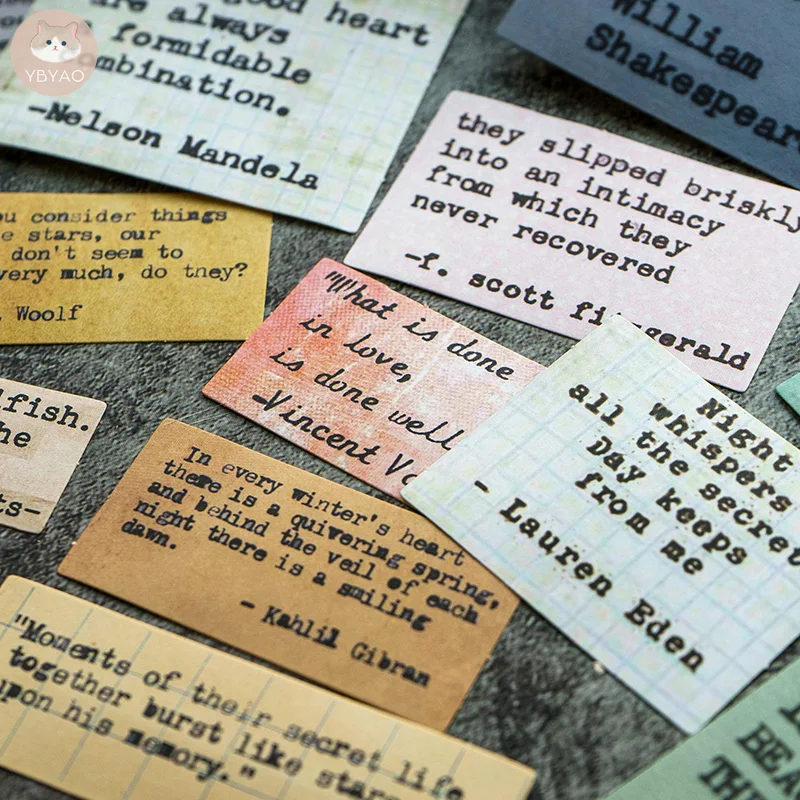 YBYAO
good heart
are always
formidable
mbination.
-Nelson Mandela
William
Shakespeare
they slipped briskly
into an intimacy
from which they
never recovered
-f. scott fitzgerald
ou consider things
e stars, our
don't seem to
very much, do they?
Woolf
"What is done
in love,
is done well
-Vincent Va
Night
whispers
all the secret
Day keeps
from me
- Lauren Eden
lfish.
he
ts-
In every winter's heart
there is a quivering spring,
and behind the veil of each
night there is a smiling
dawn.
- Kahlil Gibran
"Moments of their secret life
together burst like stars
upon his memory."
BEA
TH